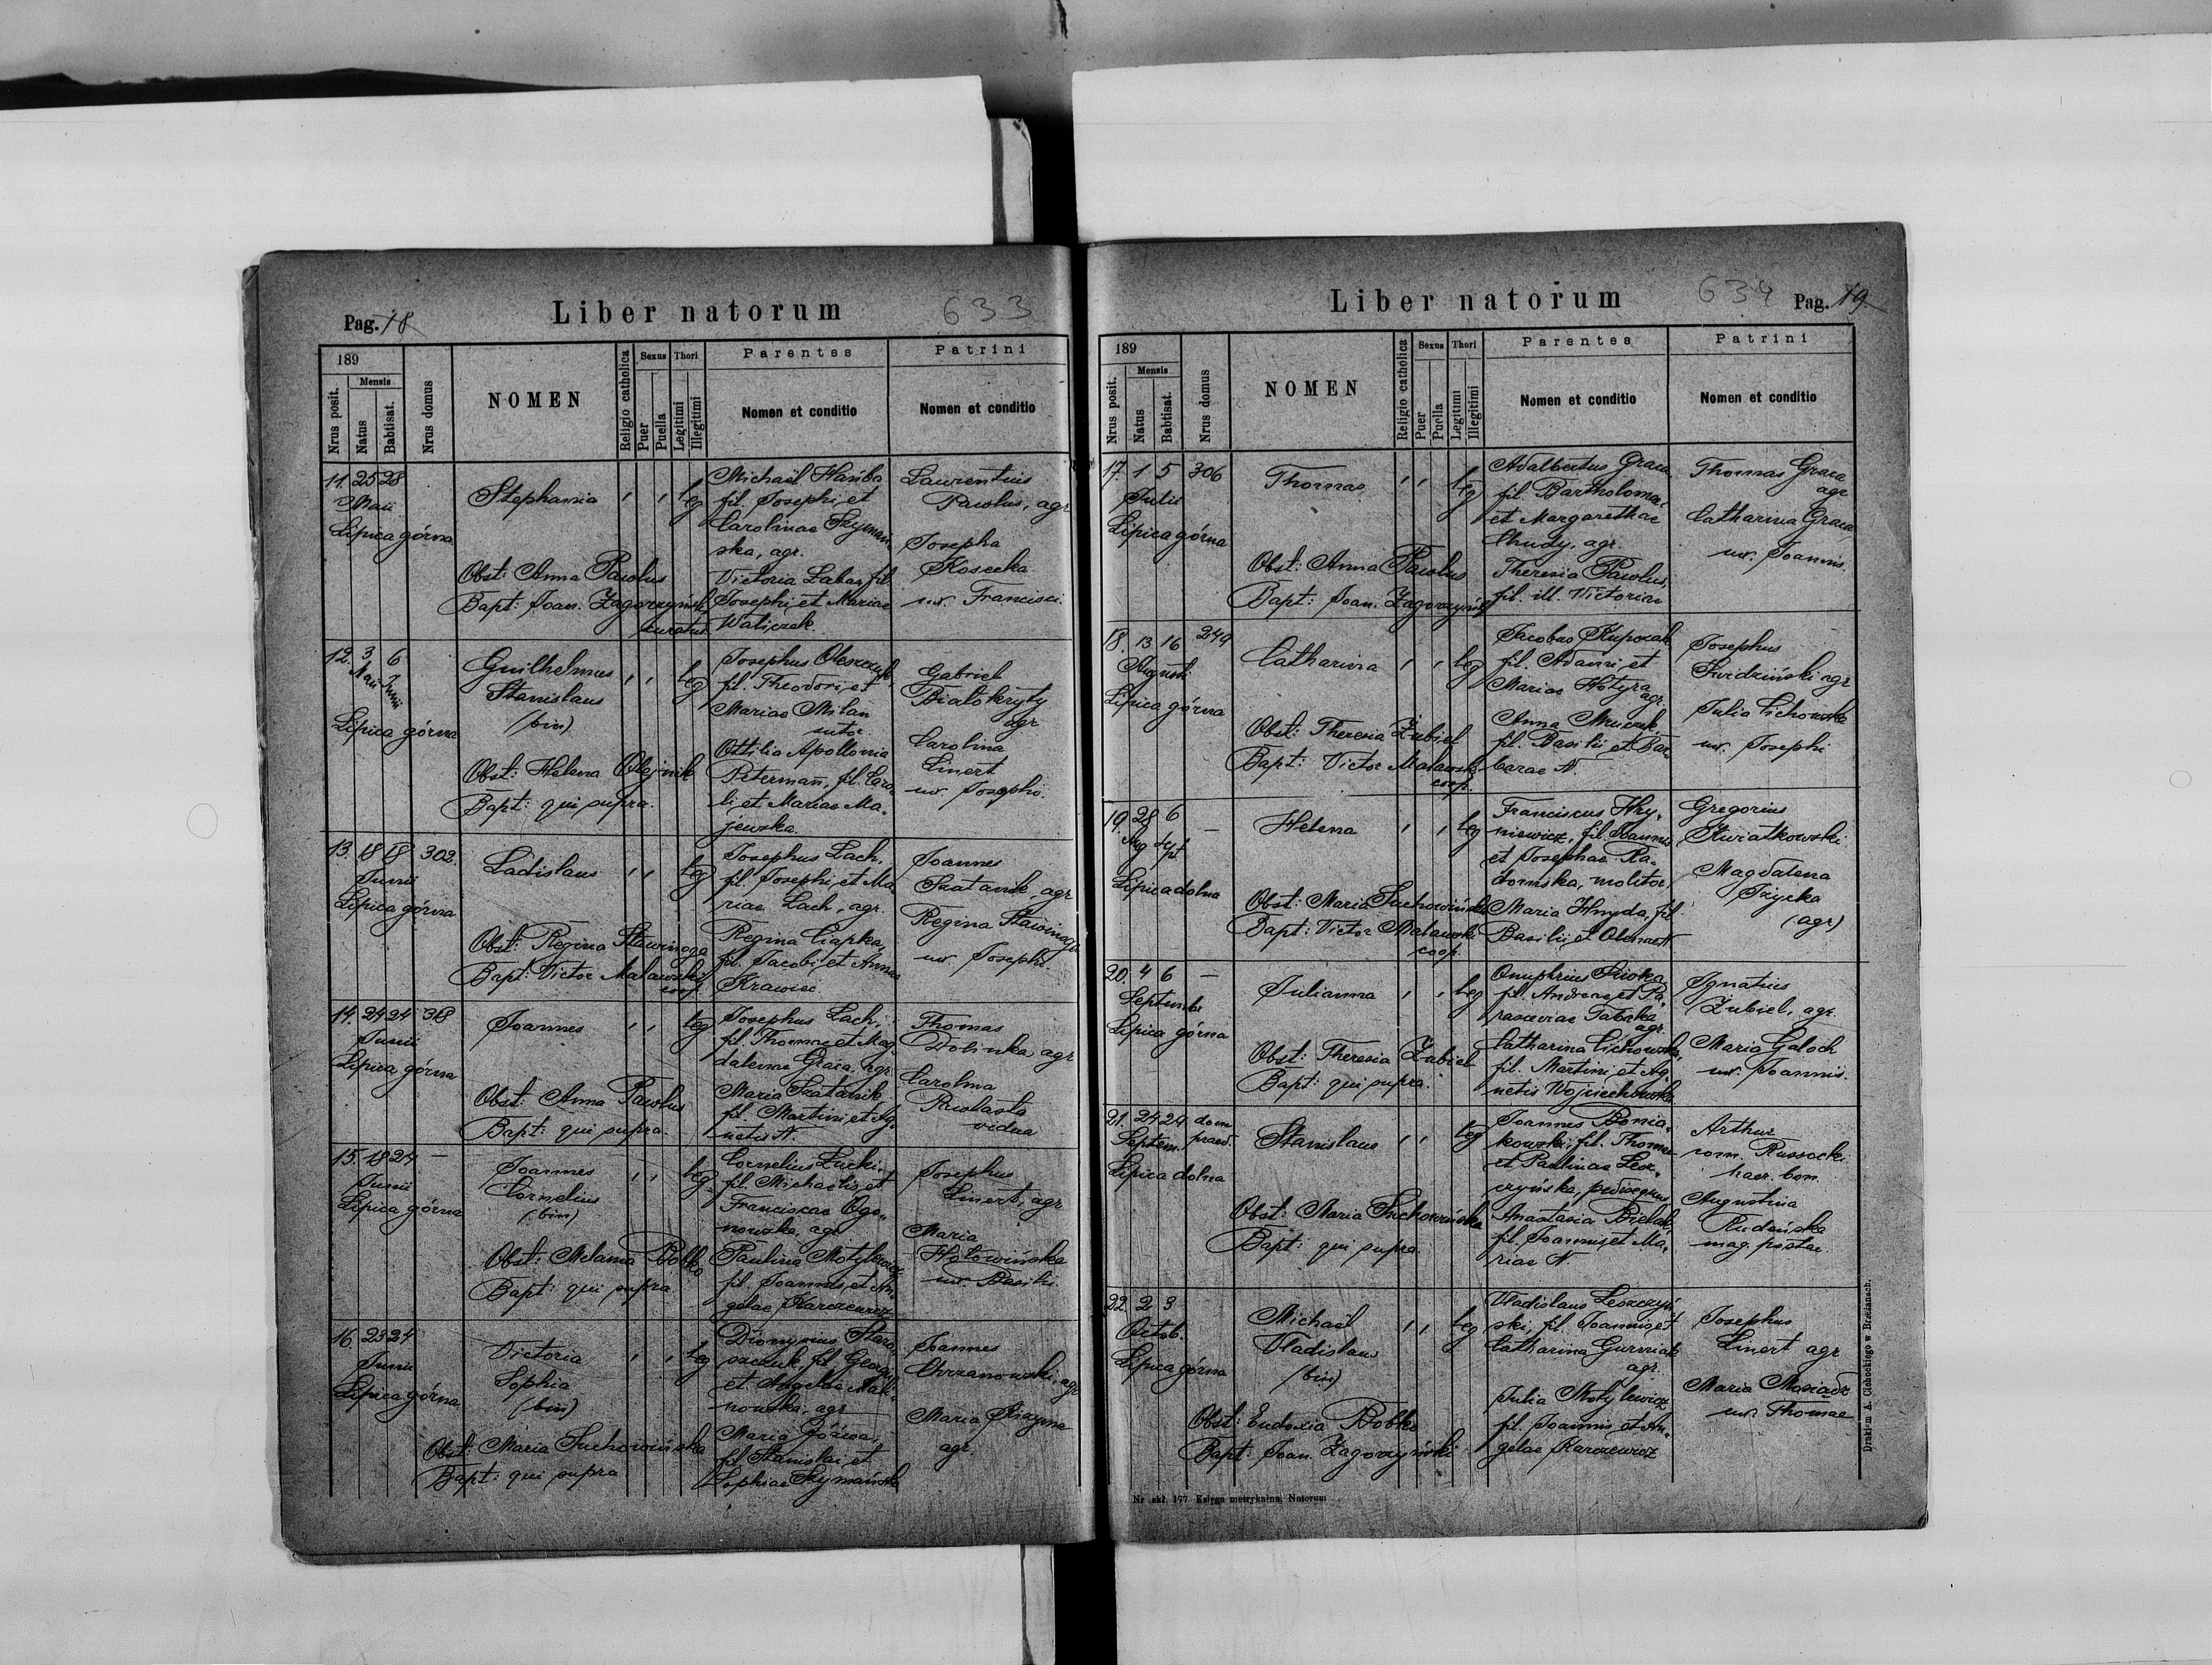 Pag. 18
Liber natorum
633
189
Nrus posit.
Mensis
Natus
Babtisat.
Nrus domus
NOMEN
Religio catholica
Sexus
Puer
Puella
Thori
Legitimi
Illegitimi
Parentes
Nomen et conditio
Patrini
Nomen et conditio
11. 25 28
Maii
Lipica górna
Stephania
leg
Obst: Anna Pawlus
Bapt: Joan. Zagorzyński
curatus
Michaël Hańba
fil. Josephi et
Carolinae Szyman,
ska, agr.
Victoria Labaz, fil.
Josephi et Mariae
Waliczek.
Laurentius
Pawlus, agr
Josepha
Kosecka
ux. Francisci.
12. 3 6
Maii Junii
Lipica górna
Guilhelmus
Stanislaus
(bin)
leg
Obst: Helena Olejnik
Bapt: qui supra.
Josephus Oleszczuk,
fil. Theodori et
Mariae Milan
sutor.
Ottilia Apollonia
Petermañ, fil. Caro,
li et Mariae Ma,
jewska.
Gabriel
Białokryty
agr
Carolina
Linert
ux. Josephi.
13. 18 18 302.
Junii
Lipica górna
Ladislaus
leg
Obst: Regina Stawinoga
Bapt: Victor Malawski
coop.
Josephus Lach,
fil. Josephi et Ma
riae Lach, agr.
Regina Ciapka,
fil. Jacobi et Annae
Krawiec.
Joannes
Szatanik, agr
Regina Stawinoga
ux. Josephi.
14. 24 24 318
Junii
Lipica górna
Joannes
leg
Obst: Anna Pawlus
Bapt: qui supra.
Josephus Lach,
fil. Thomae et Mag,
dalenae Graca, agr.
Maria Szatanik,
fil. Martini et Ag,
netis N.
Thomas
Dolinka, agr
Carolina
vidua
15. 18 24 –
Junii
Lipica górna
Joannes
Cornelius
(bin)
leg
Obst: Melania Bobko
Bapt: qui supra
Cornelius Łucki,
fil. Michaelis et
Franciscae Ogo,
nowska, agr
Paulina Motylewicz
fil. Joannis et An,
gelae Karczewicz
Josephus
Linert, agr
Maria
Hołowińska
ux. Basilii.
16. 23 24
Junii
Lipica górna
Victoria
Sophia
(bin)
leg
Obst: Maria Suchowińska
Bapt: qui supra
Dionysius Stara,
szczuk, fil. Georgii
et Angelae Mali,
nowska, agr
Maria Góźwa,
fil. Stanislai et
Sophiae Szymańska
Joannes
Chrzanowski, agr
Maria
agr.
Liber natorum
634
Pag. 19
189
Nrus posit.
Mensis
Natus
Babtisat.
Nrus domus
NOMEN
Religio catholica
Sexus
Puer
Puella
Thori
Legitimi
Illegitimi
Parentes
Nomen et conditio
Patrini
Nomen et conditio
17. 1 5 306
Julii
Lipica górna
Thomas
leg
Obst: Anna Pawlus
Bapt: Joan. Zagorzyński
Adalbertus Graca,
fil. Bartholomaei
et Margarethae
Chudy, agr.
Theresia Pawlus,
fil. ill. Victoriae
Thomas Graca
agr
Catharina Graca,
ux. Joannis.
18. 13 16 249
Augusti
Lipica górna
Catharina
leg
Obst: Theresia Zubiel
Bapt: Victor Malawski
coop.
Jacobus Krupczak
fil. Adami et
Mariae Hotyra
agr.
Anna
fil. Basilii et Bar
barae N.
Josephus
Świdziński agr
Julia Cichowska
ux. Josephi
19. 28 6 –
Aug Spt.
Lipica dolna
Helena
leg
Obst: Maria Suchowińska
Bapt: Victor Malawski
coop.
Franciscus Hry,
niewicz, fil. Joannis
et Josephae Ra,
domska, molitor,
Maria Hnyda, fil.
Basilii et N
Gregorius
Kwiatkowski
Magdalena
Tzycka
(agr)
20. 4 6 –
Septembr
Lipica górna
Julianna
leg
Obst: Theresia Zubiel
Bapt: qui supra.
Onuphrius
fil. Andreae et Pa,
rasceviae Tabaka
agr.
Catharina Cichowska,
fil. Martini et Ag,
netis Wojciechowska
Ignatius
Zubiel, agr.
Maria Gałoch
ux. Joannis.
21. 24 24 dom
Septem. praed.
Lipica dolna
Stanislaus
leg
Obst: Maria Suchowińska
Bapt: qui supra.
Joannes Bonia,
kowski, fil. Thomae
et Paulinae Lesz,
czyńska, pedisequus
Anastasia Bielak,
fil. Joannis et Ma,
riae N.
Arthur
com. Russocki
haer. bon.
Augustina
Rudeńska
mag. postae.
22. 2 3
Octob.
Lipica górna
Michaël
Vladislaus
(bin)
leg
Obst: Eudoxia Bobko
Bapt: Joan. Zagorzyński
Vladislaus Leszczyń,
ski, fil. Joannis et
Catharina Gurniak
agr.
Julia Motylewicz
fil. Joannis et An,
gelae Karczewicz
Josephus
Linert agr
Maria Mosiądz
ux. Thomae
Nr skł. 177 Księga metrykalna, Natorum
Drukiem A. Cichockiego w Brzeżanach.